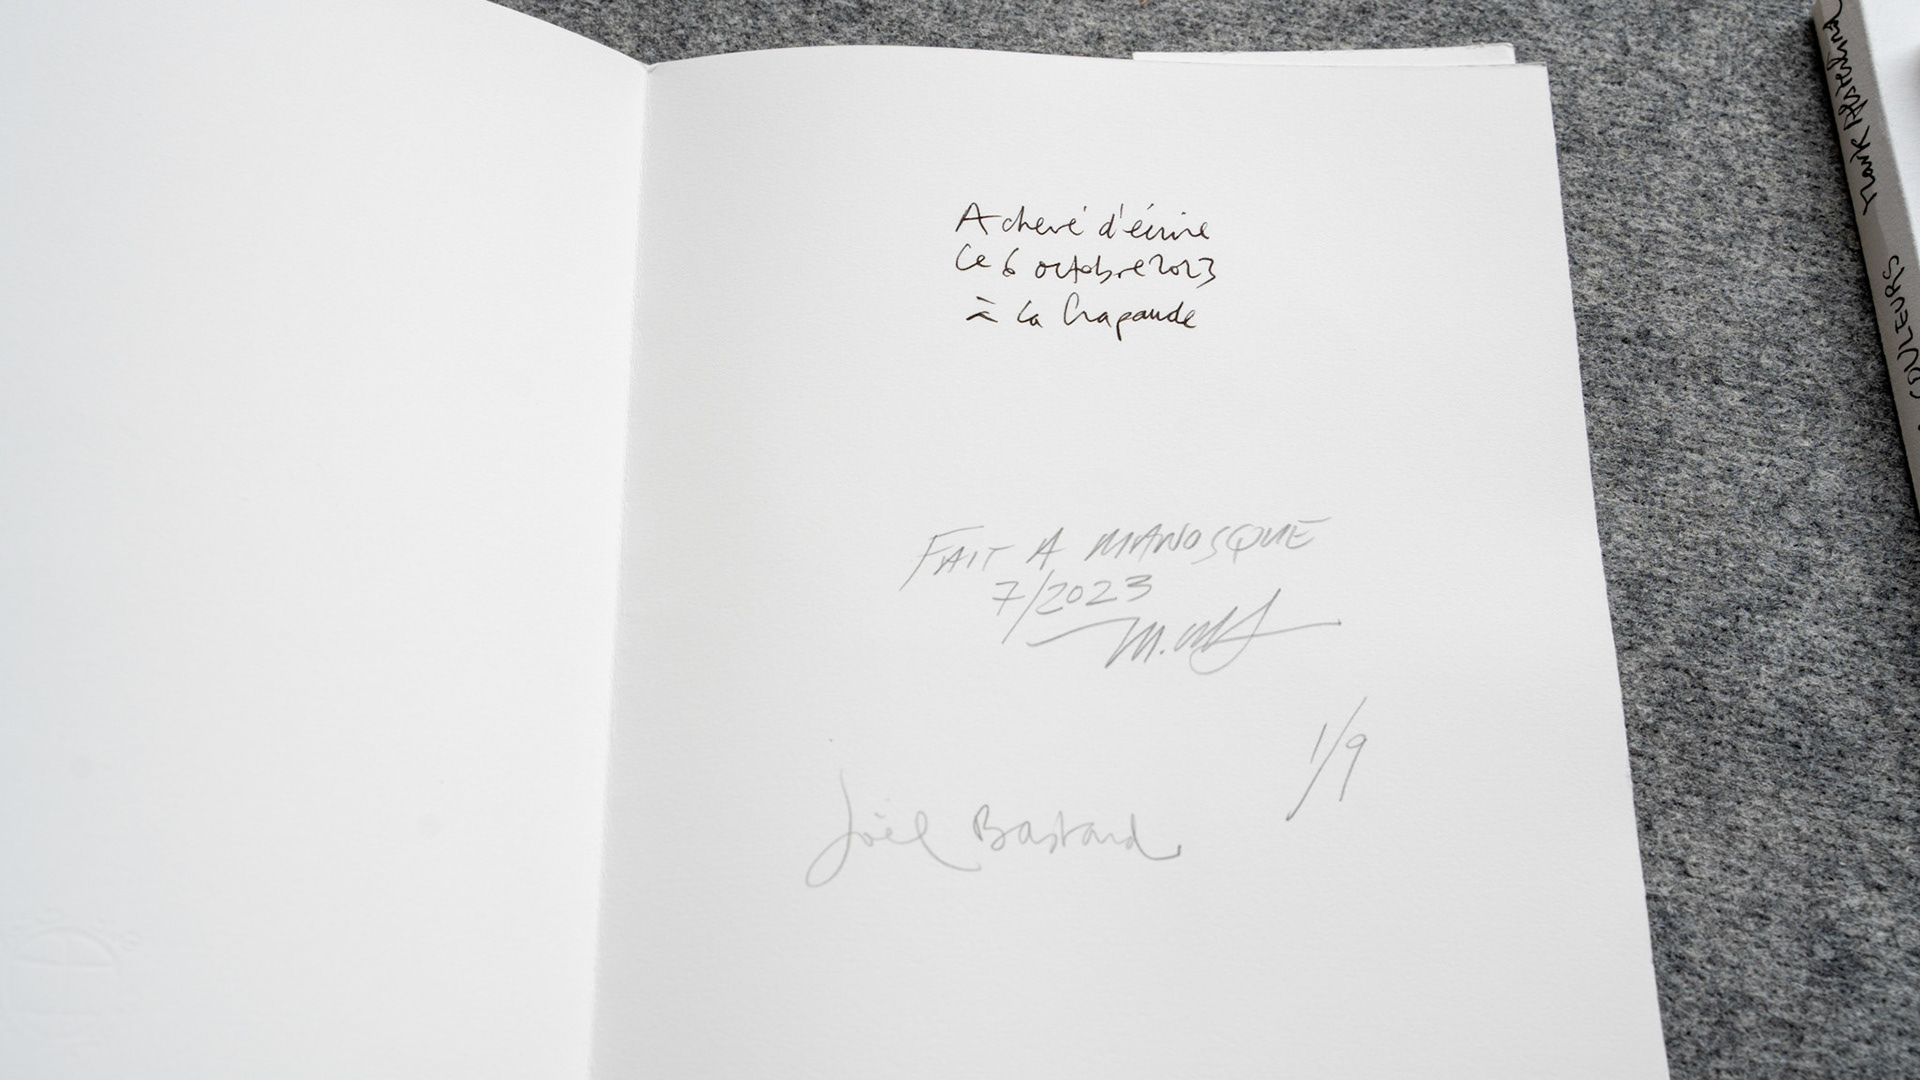 Achevé d'écrire
Ce 6 octobre 2023
à la Crapaude
FAIT A MANOSQUE
7/2023
1/9
Joël Bastard
COULEURS